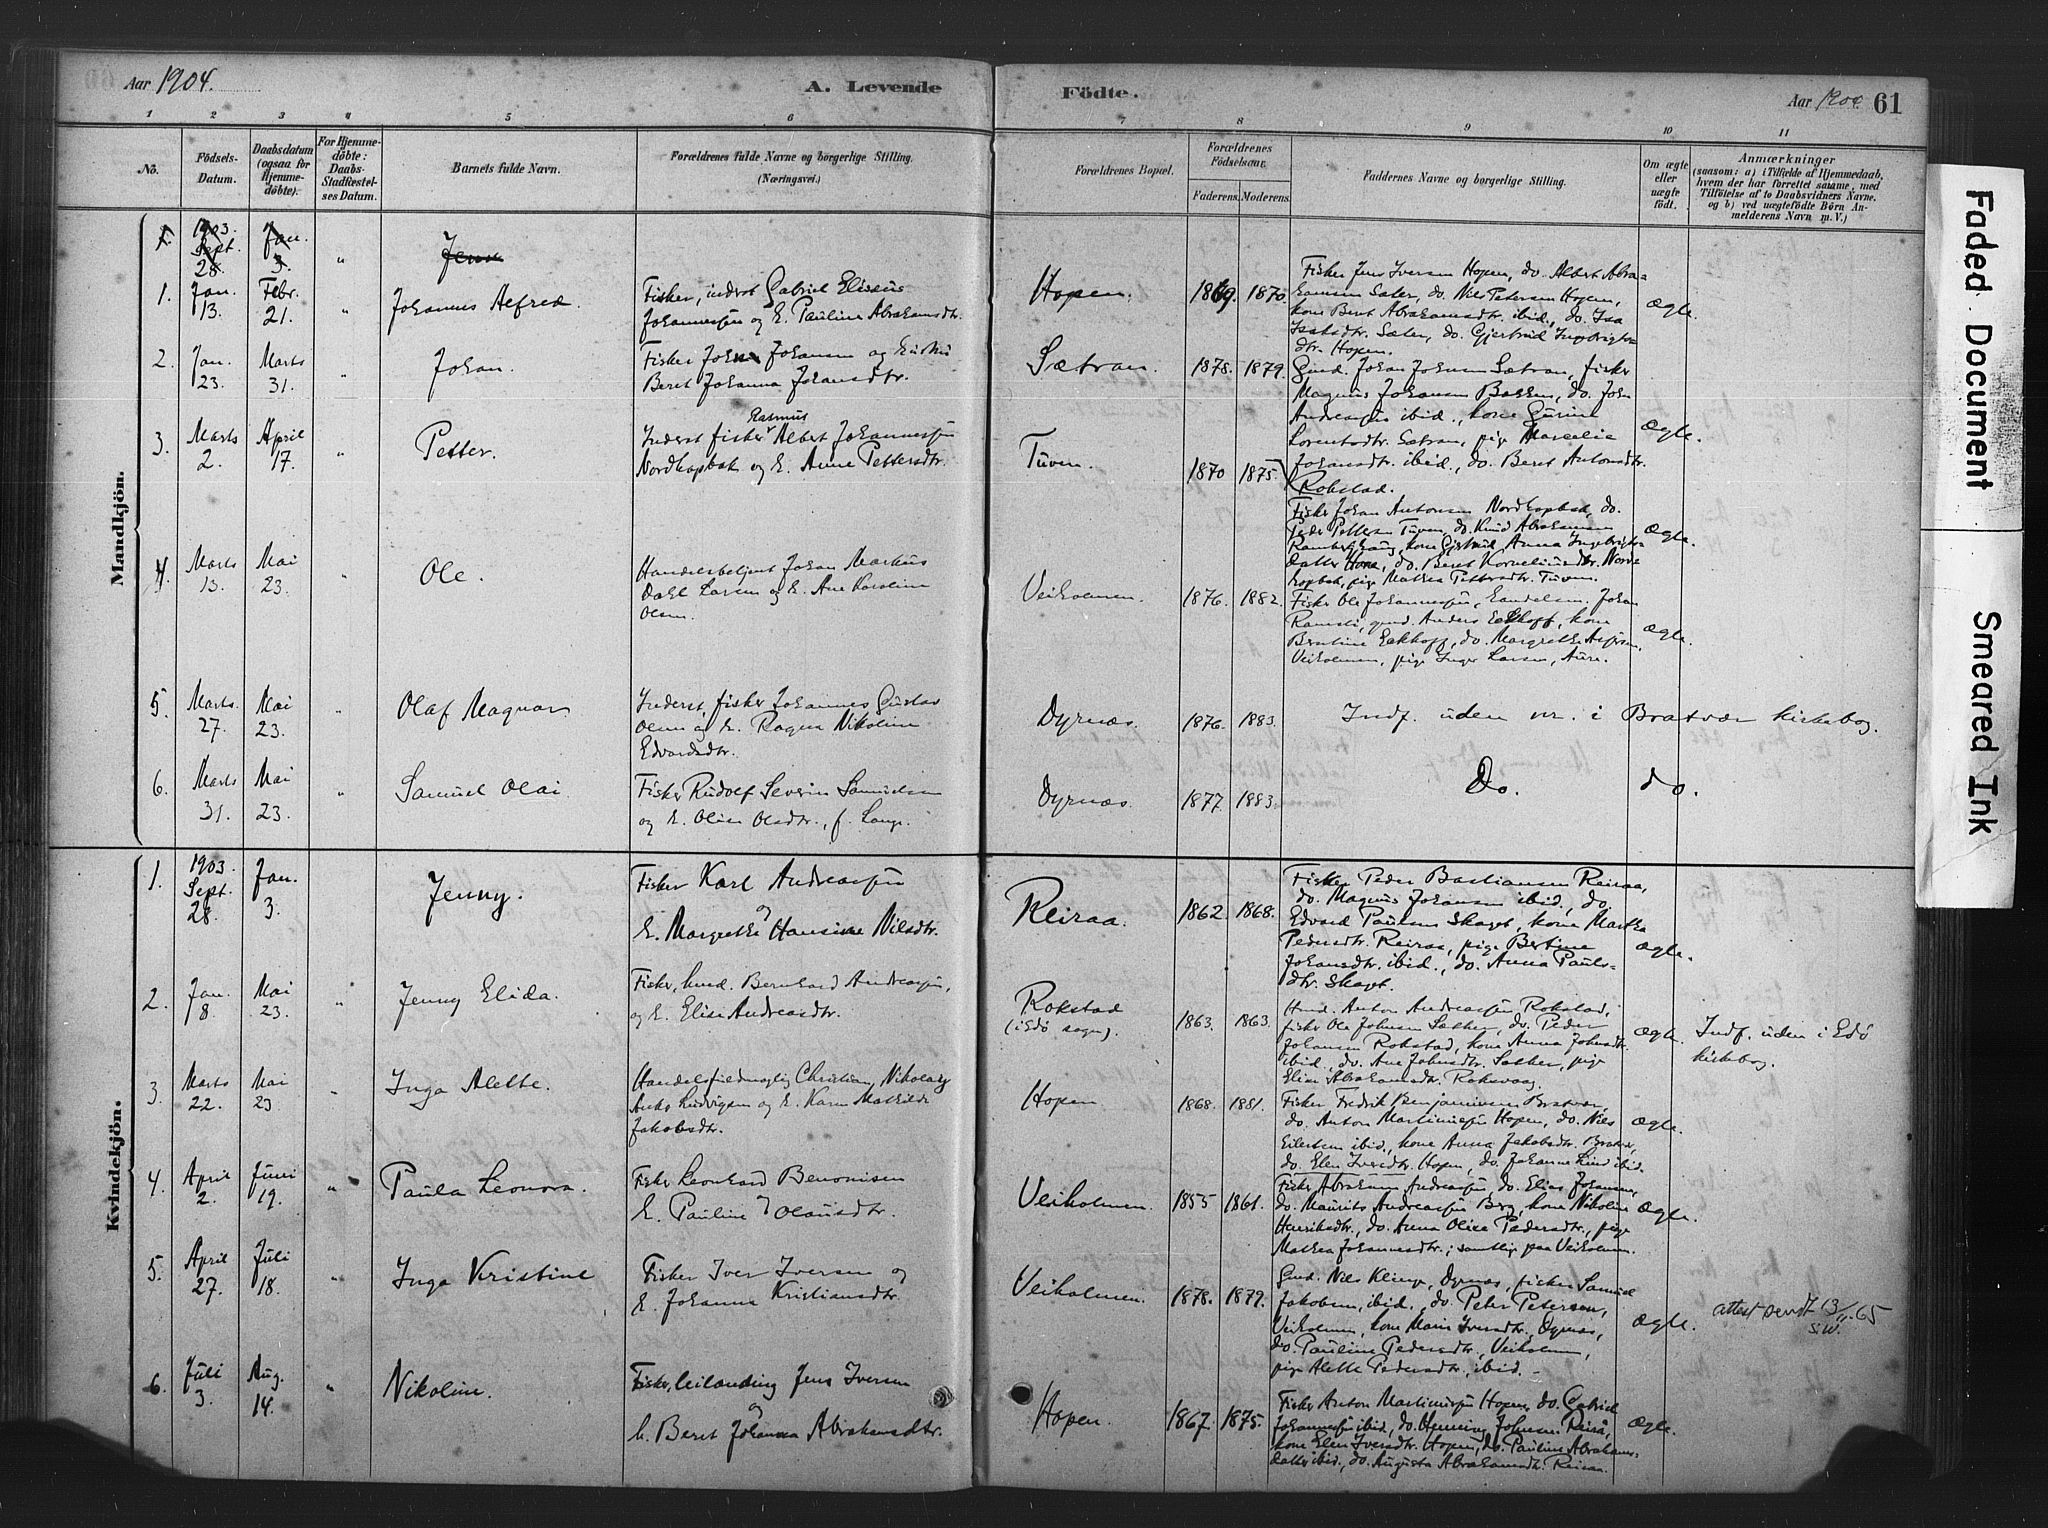 Aar 1904.
A. Levende Födte.
Aar 1904 61
1 2 3 4 5 6 7 8 9 10 11
No.
Födsels-
Datum.
Daabsdatum
(ogsaa for
Hjemme-
döbte).
For Hjemme-
döbte:
Daabs-
Stadfæstel-
ses Datum.
Barnets fulde Navn.
Forældrenes fulde Navne og borgerlige Stilling.
(Næringsvei.)
Forældrenes Bopæl.
Forældrenes
Födselsaar.
Faderens. Moderens.
Faddernes Navne og borgerlige Stilling.
Om ægte
eller
uægte
födt.
Anmærkninger
(saasom: a) i Tilfælde af Hjemmedaab,
hvem der har forrettet samme, med
Tilföielse af to Daabsvidners Navne.
og b) ved uægtefödte Börn An-
melderens Navn m. V.)
Mandkjön.
1. 1903. Sept. 28. Jan. 3. " Jenn
1. Jan. 13. Febr. 21. " Johannes Alfred
Fisker, inderst Gabriel Elisæus
Johannessen og H. Pauline Abrahamsdtr.
Hopen. 1869. 1870.
Fisker Jens Iversen Hopen, do. Albert Abra-
hamsen Sæter, do. Nils Petersen Hopen,
kone Berit Abrahamsdtr. ibid., do. Isa
Isaksdtr. Sæter, do. Gjertrud Ingebrigts-
dtr. Hopen.
Ægte.
2. Jan. 23. Marts 31. " Johan.
Fisker John Johansen og hustru
Beret Johanna Johansdtr.
Sætran. 1878. 1879.
Gmd. Johan Johnsen Sætran, fisker
Magnus Johansen Bakken, do. John
Andreassen ibid., kone Gurine
Lorentsdtr. Sætran, pige Marselie
Johansdtr. ibid., do. Beret Antonsdtr.
Rokstad.
Ægte.
3. Marts 2. April 17. " Petter.
Inderst, fisker Rasmus Albert Johannessen
Nordhopbak og H. Anne Pettersdtr.
Tuven. 1870 1875.
Fisker Johan Antonsen Nordhopbak, do.
Peder Pettersen Tuven, do. Knud Abrahamsen
kone Gjertrud Anna Ingebrigts-
datter Hone, do. Beret Korneliusdtr. Nord-
hopbak, pige Mathea Pettersdtr. Tuven.
Ægte.
4. Marts 13. Mai 23. " Ole.
Handelsbetjent Johan Markus
Dahl Larsen og H. Ane Karoline
Olsen.
Veiholmen. 1876. 1882.
Fisker Ole Johannessen, handelsm. Johan
Ramsli, gmd. Anders Eckhoff, kone
Berntine Eckhoff, do. Margrethe
Veiholmen, pige Inger Larsen, Aure.
Ægte.
5. Marts 27. Mai 23. " Olaf Magnar.
Inderst, fisker Johannes Gustav
Olsen og H. Ragna Nikoline
Edvardsdtr.
Dyrnæs. 1876. 1883.
Indf. uden nr. i Bratvær kirkebog.
6. Marts 31. Mai 23. " Samuel Olai
Fisker Rudolf Severin Samuelsen
og H. Oline Olsdtr., f. Lange.
Dyrnæs. 1877. 1883.
Do. do.
Kvindekjön.
1. 1903. Sept. 28. Jan. 3. Jenny.
Fisker Karl Andreassen
og
H. Margrethe Hansine Nilsdtr.
Reiraa. 1862. 1868.
Fisker Peder Bastiansen Reiraa,
do. Magnus Johansen ibid., do.
Edvard Paulsen Skaget, kone Martha
Pedersdtr. Reiraa, pige Bertine
Johansdtr. ibid., do. Anna Pauls-
dtr. Skaget.
Ægte.
2. Jan. 8. Mai 23. " Jenny Elida.
Fisker, husmd. Bernhard Andreassen,
og H. Elise Andreasdtr.
Rokstad
(i Edö sogn). 1863. 1863.
Husmd. Anton Andreassen Rokstad,
fisker Ole Johnsen Sæther, do. Peder
Johansen Rokstad, kone Anna Johnsdtr.
ibid., do. Ane Johnsdtr. Sæther, pige
Elise Abrahamsdtr. Roksvaag.
Ægte.
Indf. uden i Edö
kirkebog.
3. Marts 22. Mai 23 " Inga Alette.
Handelsfuldmægtig Christian Nikolai
Anks Ludvigsen og H. Karen Mathilde
Jakobsdtr.
Hopen 1868. 1881.
Fisker Fredrik Benjaminsen Bratvær,
do. Anton Martinussen Hopen, do. Nils
Eilertsen ibid., kone Anna Jakobsdtr. Bratvær,
do. Elen Iversdtr. Hopen, do. Johanne Lind ibid.
Ægte.
4. April 2. Juni 19. " Paula Leonora.
Fisker Leonhard Benonisen
og
H. Pauline Olausdtr.
Veiholmen. 1855 1861.
Fisker Abraham Andreassen, do. Elias Johansen,
do. Maurits Andreassen Berg, kone Nikoline
Henriksdtr., do. Anna Oline Pedersdtr., pige
Mathea Johannesdtr.; samtlige paa Veiholmen.
Ægte.
5. April 27. Juli 18. " Inga Kristine
Fisker Iver Iversen og
H. Johanna Kristiansdtr.
Veiholmen. 1878. 1879.
Gmd. Nils Klinge, Dyrnæs, fisker Samuel
Jakobsen, ibid., do. Peter Petersen,
Veiholmen, kone Marie Iversdtr., Dyrnæs,
do. Pauline Pedersdtr., Veiholmen,
pige Alette Pedersdtr., ibid.
Ægte.
attest sendt 13/11.65
S.W.
6. Juli 3. Aug. 14. " Nikoline.
Fisker, leilænding Jens Iversen
og
h. Beret Johanna Abrahamsdtr.
Hopen. 1867. 1875.
Fisker Anton Martinussen Hopen, do. Gabriel
Johannessen ibid., do. Henning Johnsen Reiraa,
kone Elen Iversdtr. Hopen, do. Pauline Abrahams-
datter ibid., do. Augusta Abrahamsdtr. Reiraa.
Ægte.
Faded Document
Smeared Ink